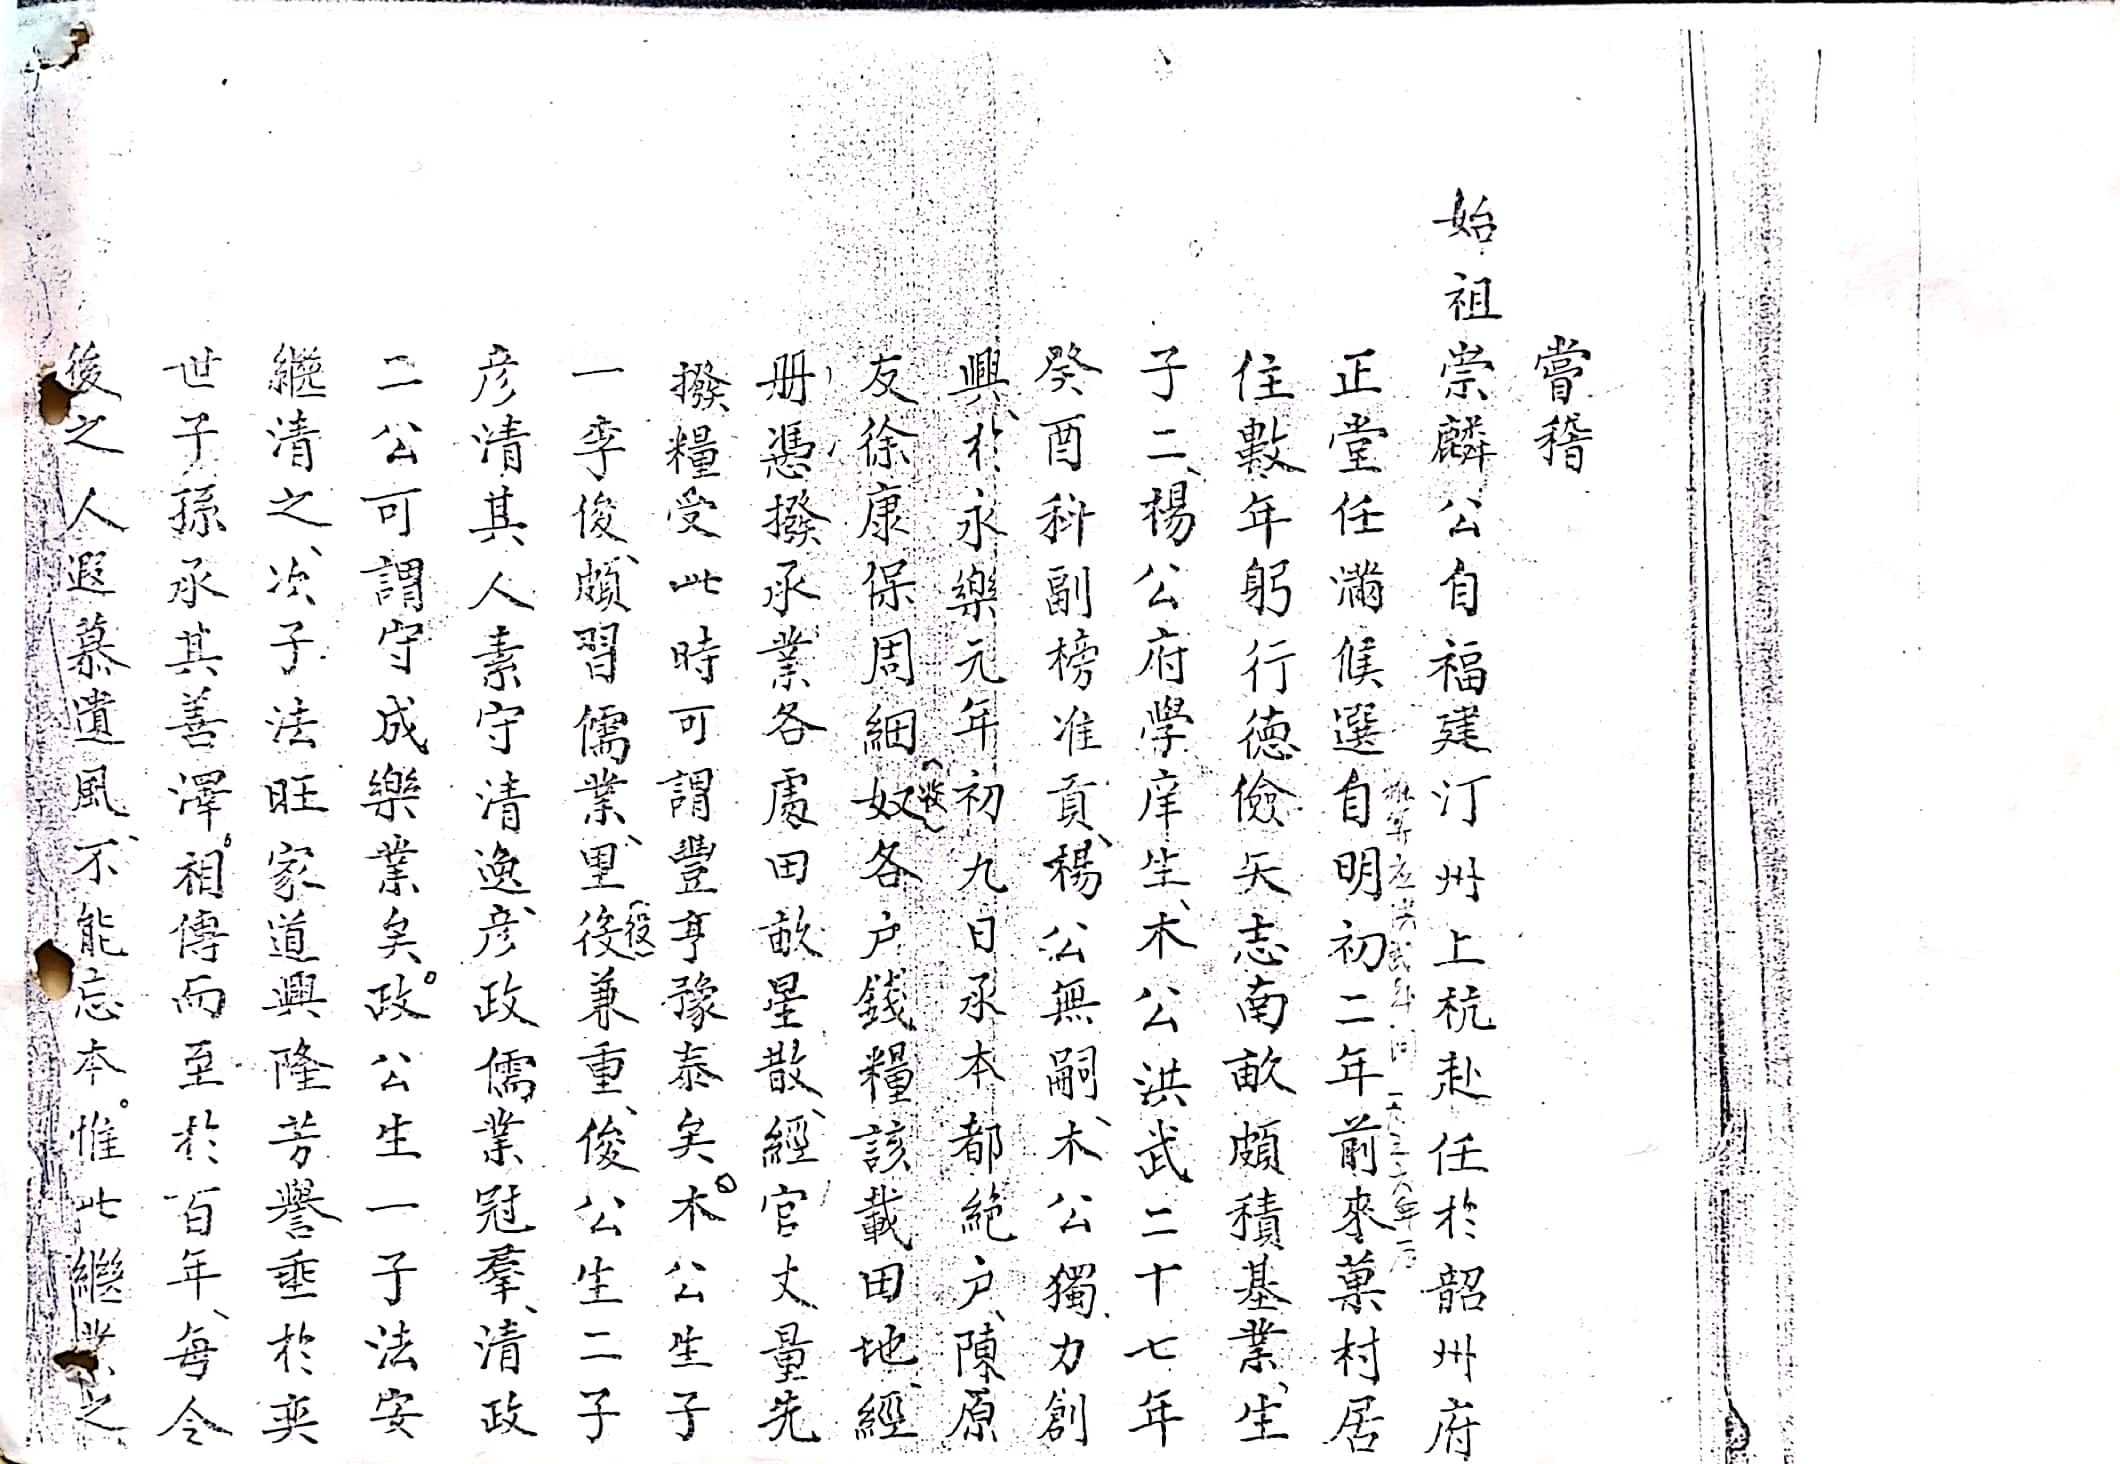 嘗稽
始祖崇麟公自福建汀州上杭赴任於韶州府
正堂任滿候選自明初二年前來菓村居
住數年躬行德儉矢志南畝頗積基業、生
子二、楊公府學庠生、木公洪武二十七年
癸酉科副榜准貢、楊公無嗣、木公獨力創
興、於永樂元年初九日承本都絶户、陳原
友徐康保周細奴各户錢糧該載田地、經
册憑撥承業各處田畝星散、經官丈量先
撥糧受此時可謂豐亨豫泰矣。木公生子
一李俊、頗習儒業、里後(役)兼重、俊公生二子
彦清其人素守清逸、彦政儒業冠羣、清政
二公可謂守成樂業矣。政公生一子法安
繼清之、次子法旺家道興隆芳譽垂於奕
世子孫承其善澤。相傳而至於百年、每令
後之人遐慕遺風、不能忘本。惟此繼業之